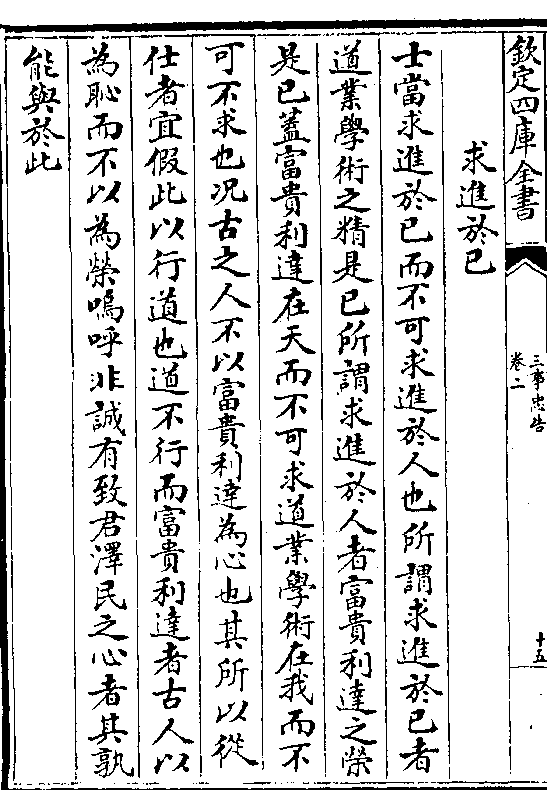 欽定四庫全書
三事忠告
卷二
十五
求進於已
士當求進於已而不可求進於人也所謂求進於已者
道業學術之精是已所謂求進於人者富貴利達之榮
是已蓋富貴利達在天而不可求道業學術在我而不
可不求也况古之人不以富貴利達為心也其所以從
仕者宜假此以行道也道不行而富貴利達者古人以
為恥而不以為榮嗚呼非誠有致君澤民之心者其孰
能與於此